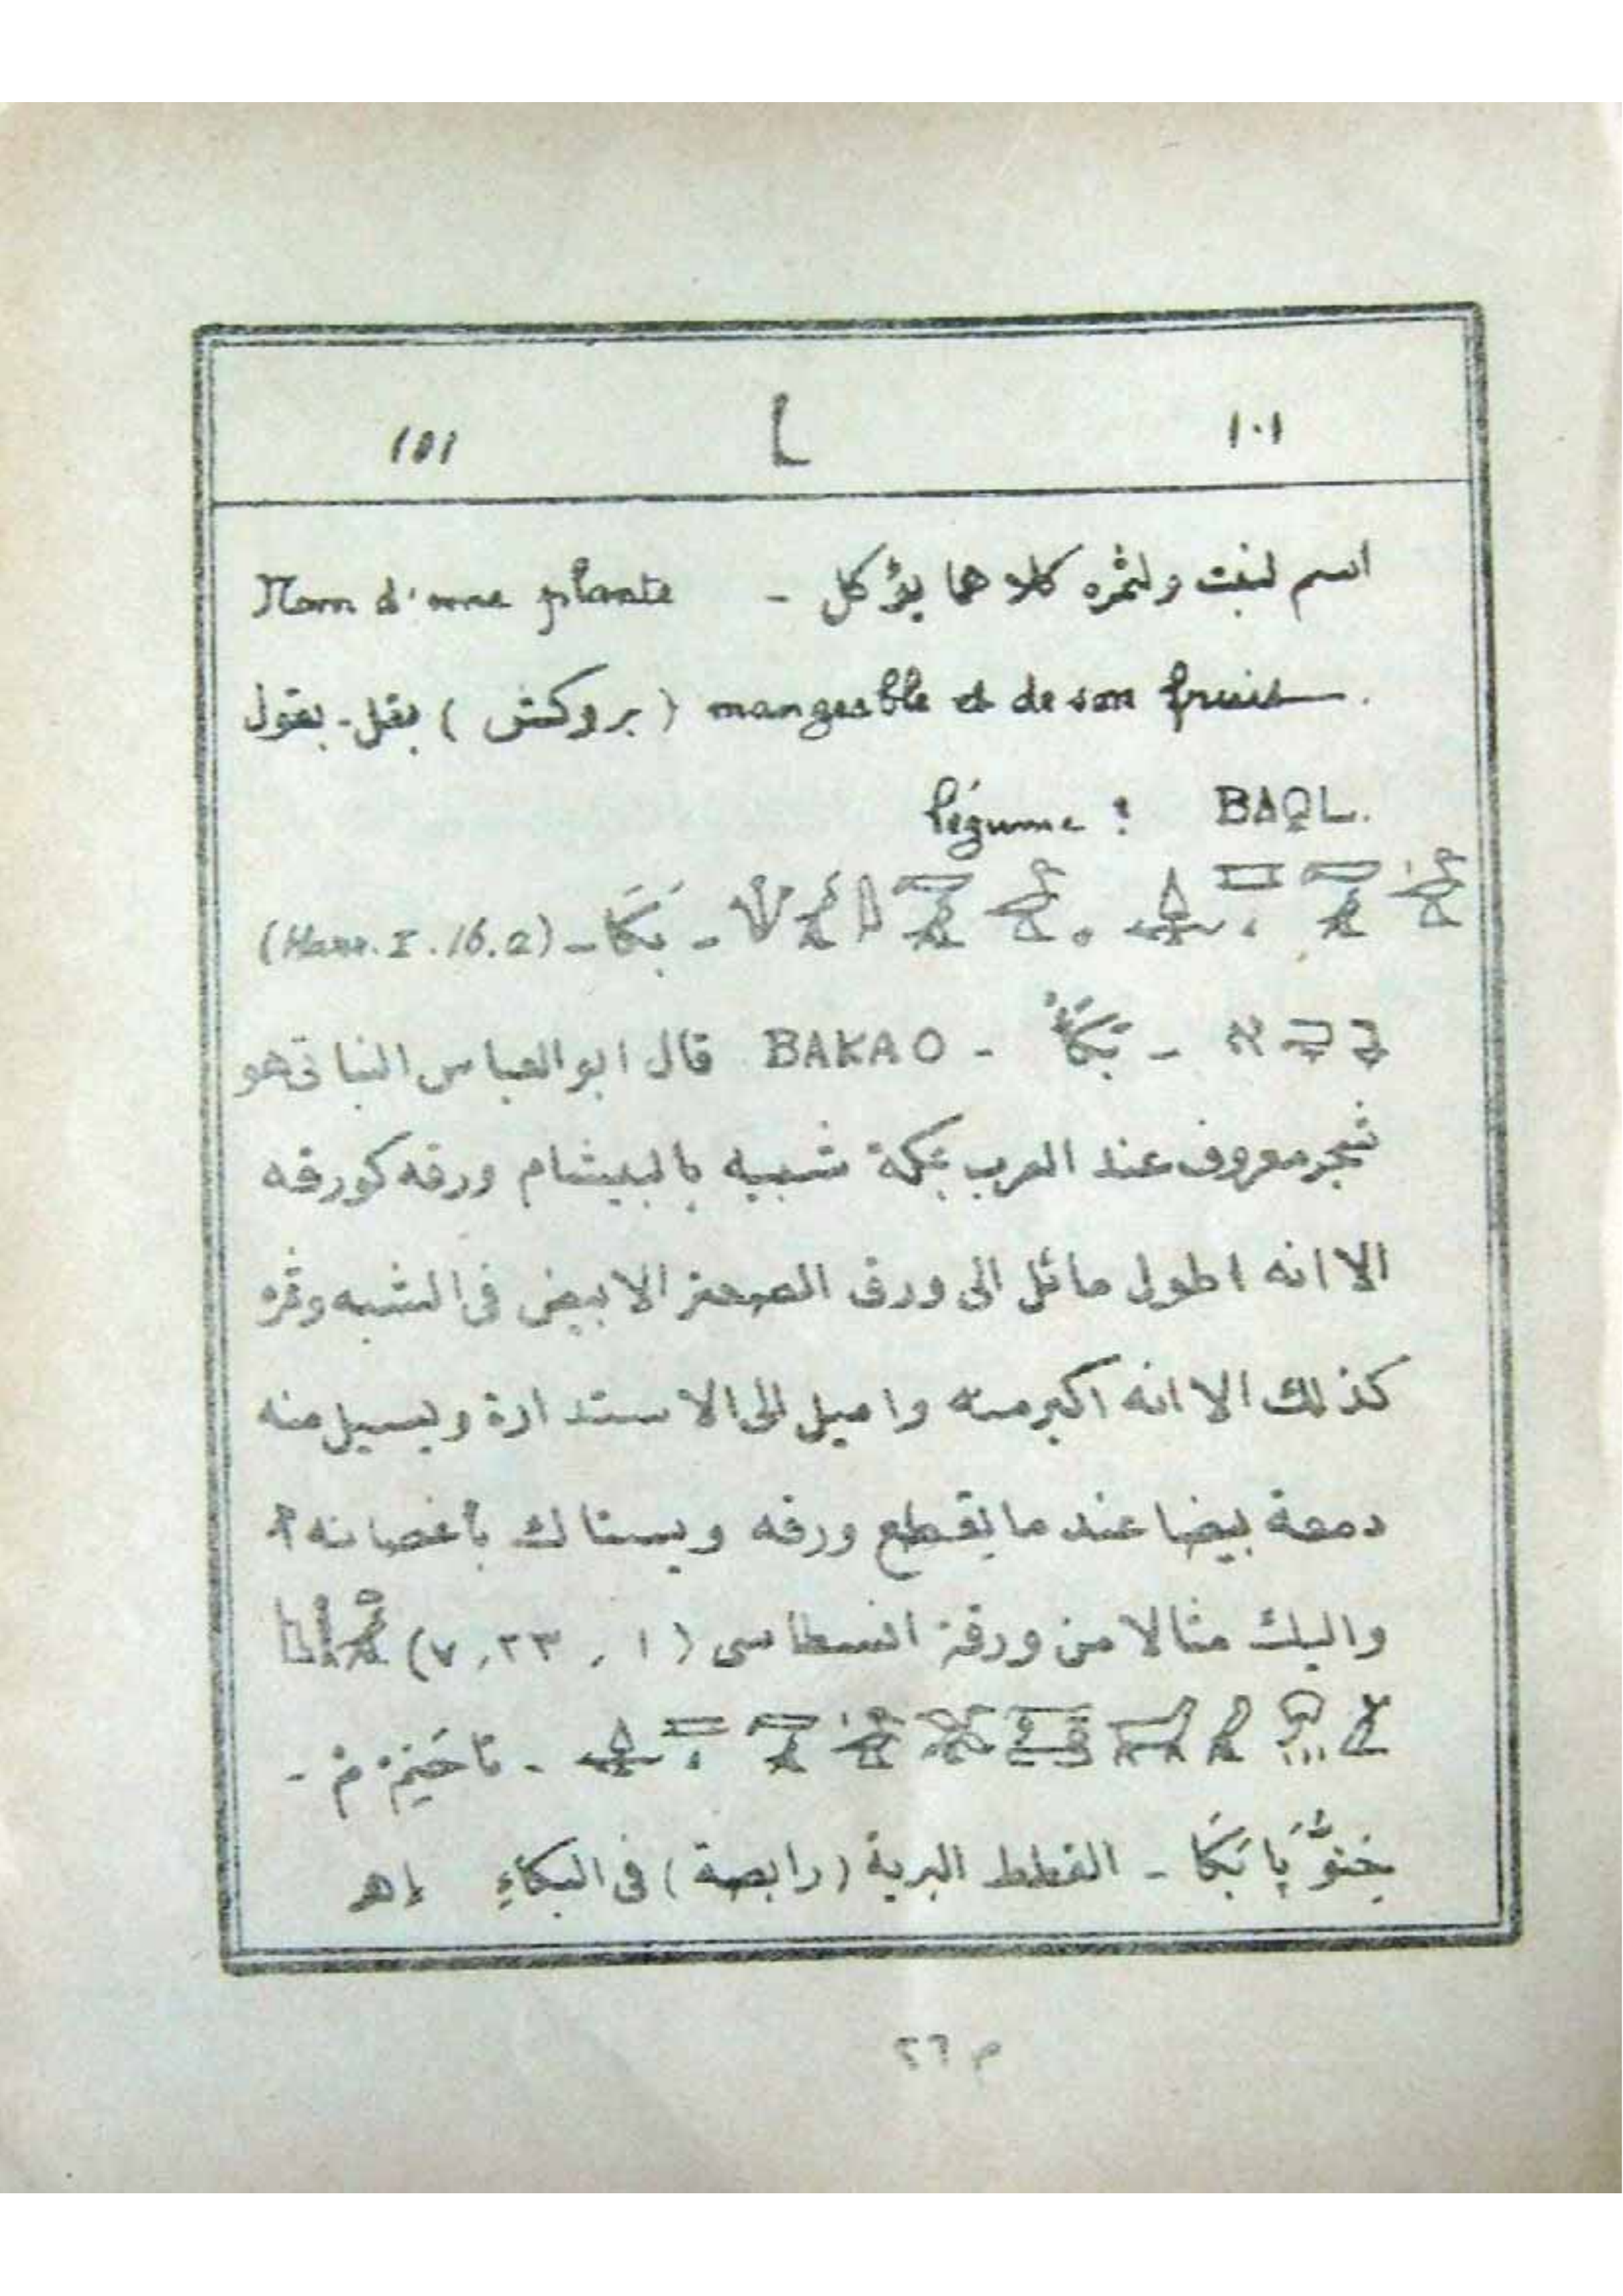 ١٠١ 101
اسم لنبت ولثمره كلاهما يؤكل - Nom d'une plante
mangeable et de son fruit. (بروكش) بقل - بقول
légume : BAQL.
- بَكَا - (Harr. I. 16. 2)
בכא - بَكَأ - BAKAO قال ابو العباس النباتى هو
شجر معروف عند العرب بمكة شبيه بالبيشام ورقه كورقه
الا انه اطول مائل الى ورق الصعتر الابيض فى الشبه وثمره
كذلك الا انه اكبر منه واميل الى الاستدارة ويسيل منه
دمعة بيضا عند ما يقطع ورقه ويستاك بأغصانه
واليك مثالا من ورقة انسطاسى (١ ، ٢٣ ، ٧)
پَا بَكَا - القطط البرية (رابصة) فى البكاءِ إهـ
م ٢٦